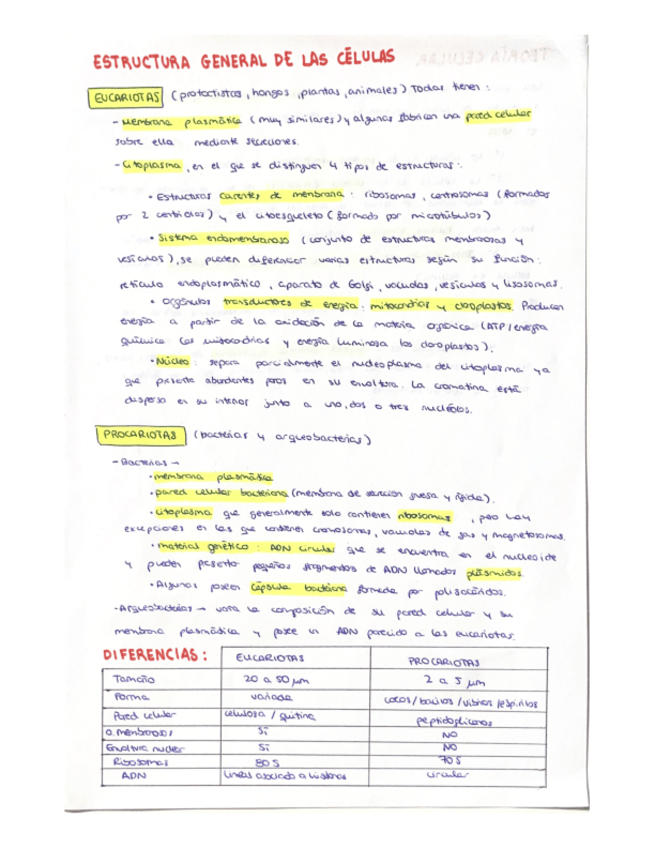 ESTRUCTURA GENERAL DE LAS CÉLULAS
EUCARIOTAS (protoctistas, hongos, plantas, animales) Todas tienen:
- Membrana plasmática (muy similares) y algunas fabrican una pared celular
sobre ella mediante secreciones.
- Citoplasma, en el que se distinguen 4 tipos de estructuras:
• Estructuras carentes de membrana: ribosomas, centrosomas (formados
por 2 centriolos) y el citoesqueleto (formado por microtúbulos)
• Sistema endomembranoso (conjunto de estructuras membranosas y
vesículas), se pueden diferenciar varias estructuras según su función:
retículo endoplasmático, aparato de Golgi, vacuolas, vesículas y lisosomas.
• Orgánulos transductores de energía: mitocondrias y cloroplastos. Producen
energía a partir de la oxidación de la materia orgánica (ATP/energía
química las mitocondrias y energía luminosa los cloroplastos).
• Núcleo: separa parcialmente el nucleoplasma del citoplasma ya
que presenta abundantes poros en su envoltura. La cromatina está
dispersa en su interior junto a uno, dos o tres nucléolos.
PROCARIOTAS (bacterias y arqueobacterias)
- Bacterias →
• membrana plasmática
• pared celular bacteriana (membrana de secreción gruesa y rígida).
• citoplasma que generalmente solo contienen ribosomas, pero hay
excepciones en las que contienen , vacuolas de gas y magnetosomas.
• material genético: ADN circular que se encuentra en el nucleoide
y pueden presentar pequeños fragmentos de ADN llamados plásmidos.
• Algunas poseen cápsula bacteriana formada por polisacáridos.
- Arqueobacterias → varía la composición de su pared celular y su
membrana plasmática y posee un ADN parecido a las eucariotas.
DIFERENCIAS: EUCARIOTAS PROCARIOTAS
Tamaño 20 a 50 μm 2 a 5 μm
Forma variada cocos/bacilos/vibrios/espirilos
Pared celular celulosa / quitina
O. membranosos Sí NO
Envoltura nuclear Sí NO
Ribosomas 80 S 70 S
ADN lineal asociado a histonas circular